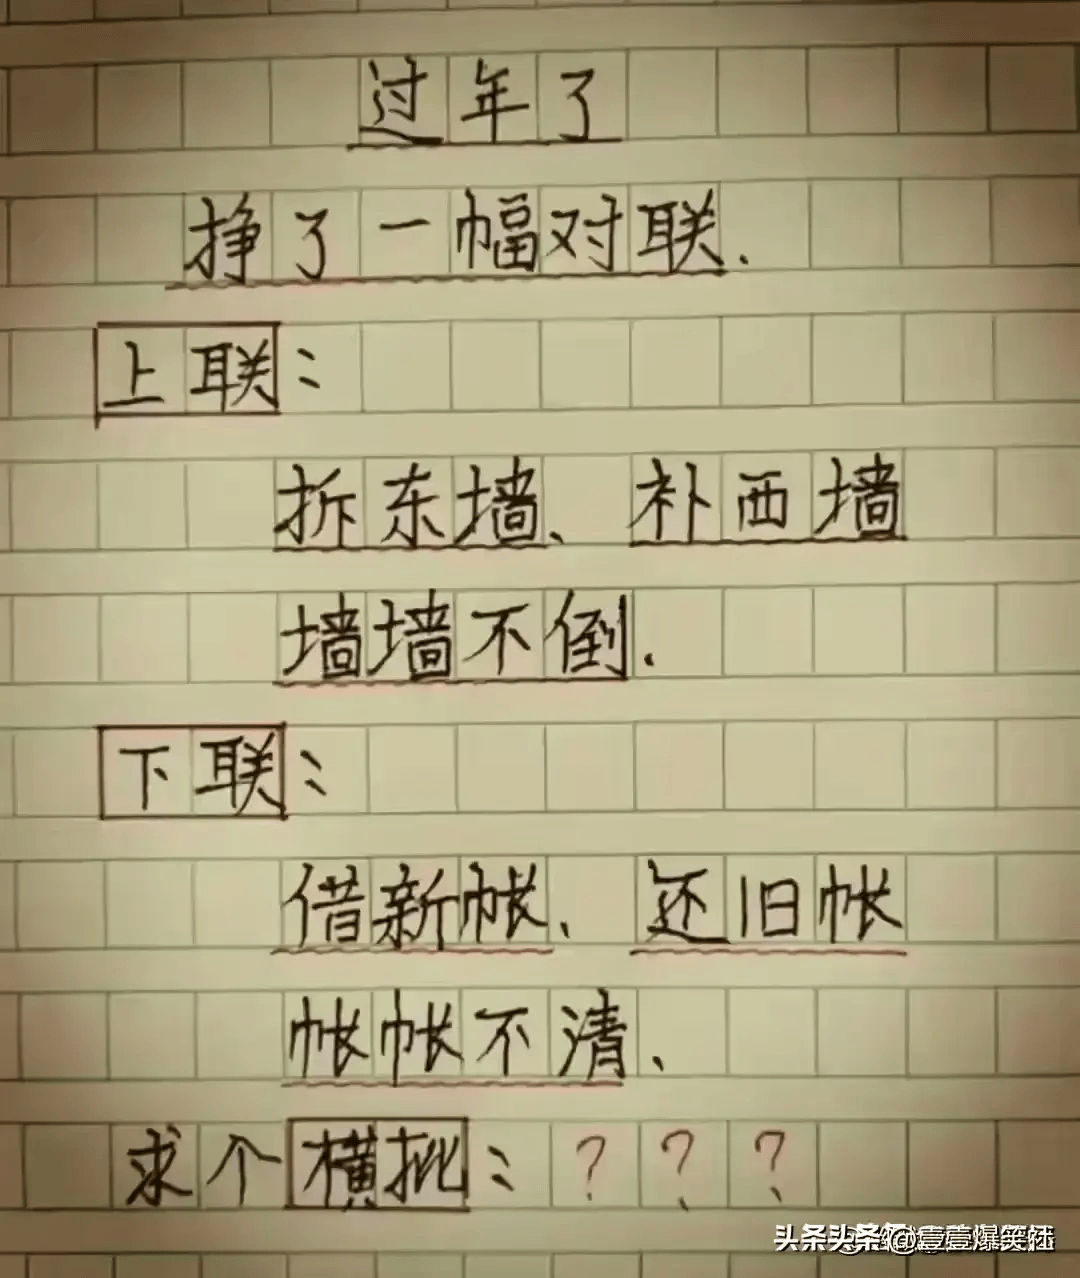 过年了
挣了一幅对联.
上联:
拆东墙、补西墙
墙墙不倒.
下联:
借新帐、还旧帐
帐帐不清、
求个横批:???
头条 @壹壹爆笑班